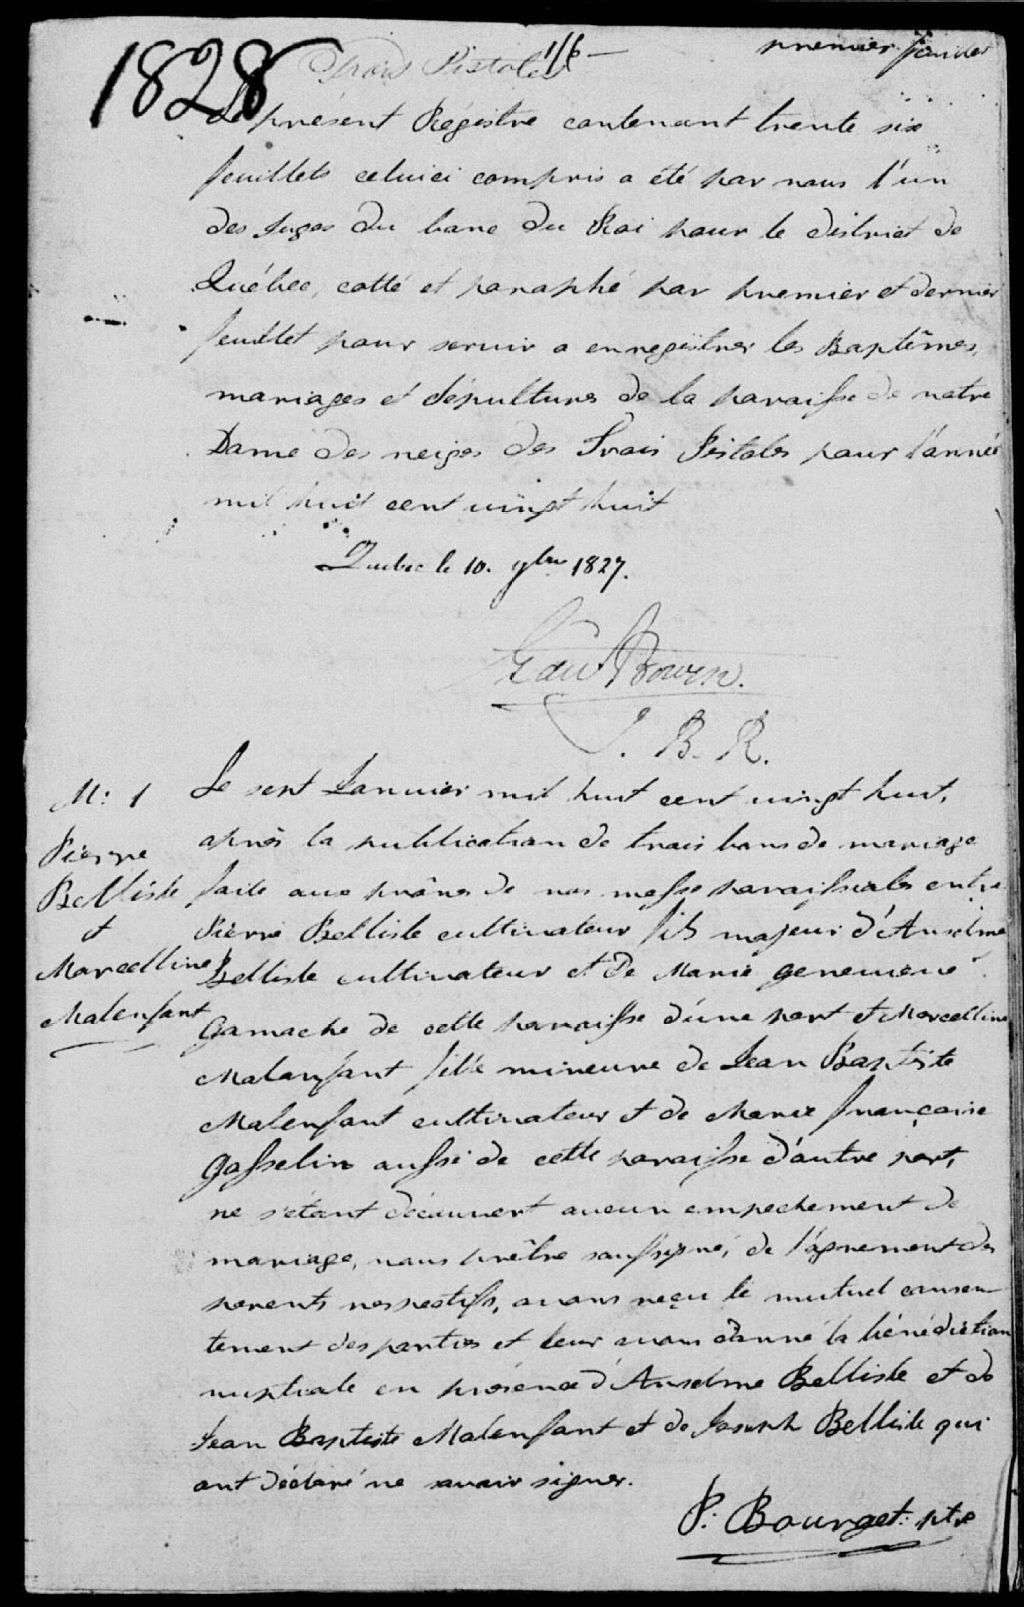 1828 Trois Pistoles 1/6 premier feuillet
Le présent Régistre contenant trente six
feuillets celuici compris a été par nous l'un
des Juges du banc du Roi pour le district de
Québec, cotté et paraphé par premier et dernier
feuillet pour servir a enregistrer les Baptêmes,
mariages et sépultures de la paroisse de notre
Dame des neiges des Trois Pistoles pour l'année
mil huit cent vingt huit
Quebec le 10. 9bre 1827.
Edw Bowen.
J. B. R.
M: 1
Pierre
Bellisle
et
Marcelline
Malenfant
Le sept Janvier mil huit cent vingt huit,
après la publication de trois bans de mariage
faite aux prônes de nos messes paroissiales entre
Pierre Bellisle cultivateur fils majeur d'Anselme
Bellisle cultivateur et de Marie genevieve
Gamache de cette paroisse d'une part et Marcelline
Malanfant fille mineure de Jean Baptiste
Malenfant cultivateur et de Marie françoise
Gasselin aussi de cette paroisse d'autre part,
ne s'étant découvert aucun empechement de
mariage, nous prêtre soussigné, de l'agrement des
parents respectifs, avons reçu le mutuel consen-
tement des parties et leur avons donné la bénédiction
nuptiale en présence d'Anselme Bellisle et de
Jean Baptiste Malenfant et de Joseph Bellisle qui
ont déclaré ne savoir signer.
P. Bourget: ptre